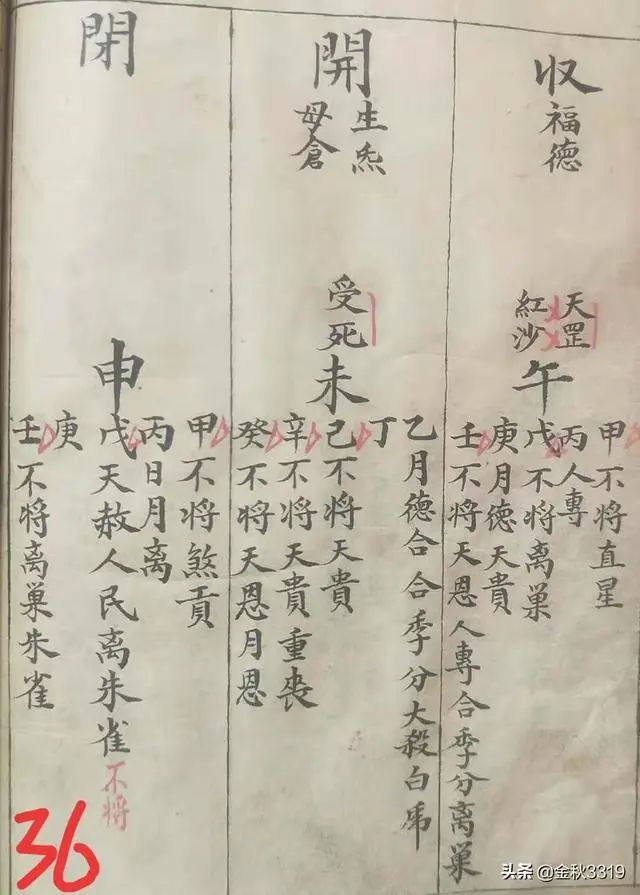 収
福德
天罡
紅沙
午
甲不将直星
丙人專
戊不将离巢
庚月德天貴
壬不将天恩人專合季分离巢
開
生炁
母倉
受死
未
乙月德合合季分大殺白虎
丁
己不将天貴
辛不将天貴重喪
癸不将天恩月恩
閉
申
甲不将煞貢
丙日月离
戊天赦人民离朱雀不将
庚
壬不将离巢朱雀
36
头条 @金秋3319